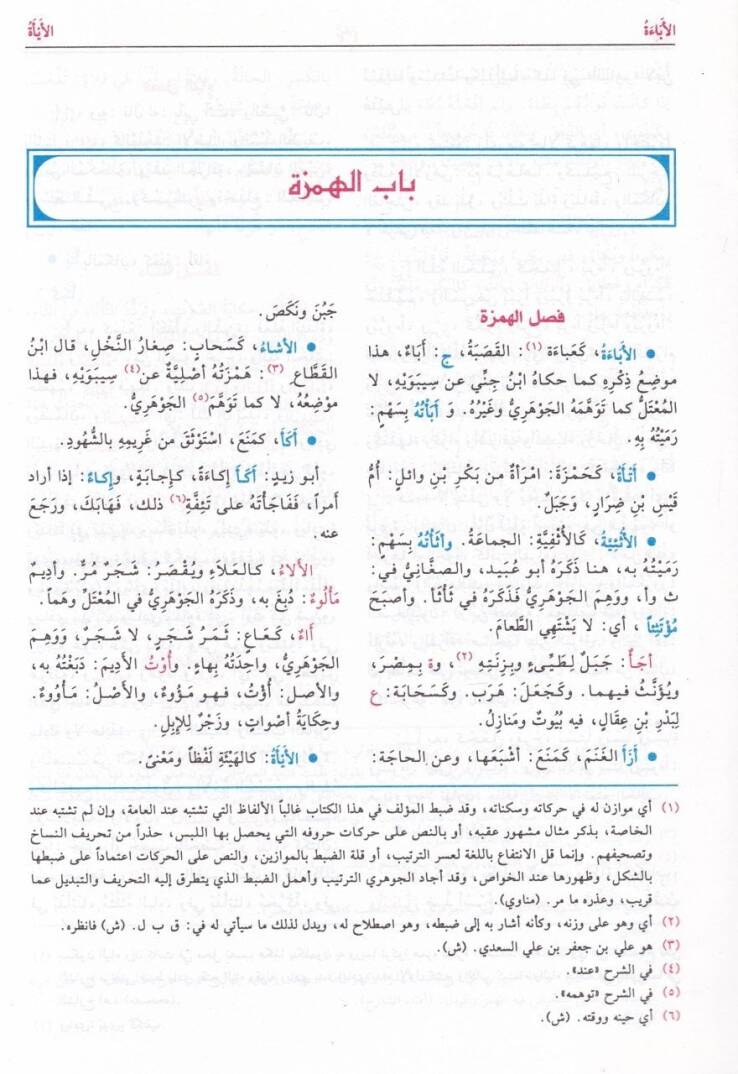 الأَبَاءَةُ
الأَيْأَةُ
باب الهمزة
فصل الهمزة
● الأَبَاءَةُ، كَعَباءَة (١): القَصَبَةُ، ج: أَبَاءٌ، هذا
موضِعُ ذِكْرِهِ كما حكاهُ ابْنُ جِنِّي عن سِيبَوَيْهِ، لا
المُعْتَلُّ كما تَوَهَّمَهُ الجَوْهَرِيُّ وغَيْرُهُ. وَ أَبَأْتُهُ بِسَهْمٍ:
رَمَيْتُهُ بِهِ.
● أَثْأَةُ، كَحَمْزَةَ: امْرَأَةٌ من بَكْرِ بْنِ وائلٍ: أُمُّ
قَيْسِ بْنِ ضِرَارٍ، وَجَبَلٌ.
● الأَثْئِيَّةُ، كَالأُثْفِيَّةِ: الجماعَةُ. وأَثَأْتُهُ بِسَهْمٍ:
رَمَيْتُهُ به، هنا ذَكَرَهُ أبو عُبَيد، والصَّغَانِيُّ في:
ث و أ، ووَهِمَ الجَوْهَرِيُّ فَذَكَرَهُ في ثَأْثَأَ. وأَصبَحَ
مُؤْتَثِئاً، أي: لا يَشْتَهِي الطَّعامَ.
أَجَأٌ: جَبَلٌ لِطَيِّىءٍ وبِزِنَتِهِ (٢)، و ة بِمِصْرَ،
ويُؤَنَّثُ فيهما. وكَجَعَلَ: هَرَبَ. وكَسَحَابَة: ع
لِبَدْرِ بْنِ عِقَالٍ، فيه بُيُوتٌ ومَنازِلُ.
● أَزَأَ الغَنَمَ، كَمَنَعَ: أَشْبَعَها، وعن الحاجَة:
جَبُنَ ونَكَصَ.
● الأَشاءُ، كَسَحابٍ: صِغارُ النَّخْلِ، قال ابْنُ
القَطَّاعِ (٣): هَمْزَتُهُ أصْلِيَّةٌ عن (٤) سِيبَوَيْهِ، فهذا
مَوْضِعُهُ، لا كما تَوَهَّمَ (٥) الجَوْهَرِيُّ.
● أَكَأَ، كمَنَعَ، اسْتَوْثَقَ من غَرِيمِهِ بالشُّهُودِ.
أبو زيدٍ: أَكَأَ إِكَاءَةً، كإِجابةٍ، وإِكاءً: إذا أرادَ
أمراً، فَفَاجَأْتُهُ على تَئِفَّةِ (٦) ذلك، فَهَابَكَ، ورَجَعَ
عنه.
الأَلاَءُ، كالعَلاَءِ ويُقْصَرُ: شَجَرٌ مُرٌّ. وأدِيمٌ
مَأْلُوءٌ: دُبِغَ به، وذَكَرَهُ الجَوْهَرِيُّ في المُعْتَلّ وهَماً.
آاءٌ، كَعَاعٍ: ثَمَرُ شَجَرٍ، لا شَجَرٌ، ووَهِمَ
الجَوْهَرِيُّ، واحِدَتُهُ بهاءٍ. وأُوْتُ الأدِيمَ: دَبَغْتُهُ به،
والأصل: أُؤْتُ، فهو مَؤُوءٌ، والأَصْلُ: مَأْوُوءٌ.
وحِكايَةُ أصْواتٍ، وزَجْرٌ للإِبِلِ.
● الأَيْأَةُ: كالهَيْئَةِ لَفْظاً ومَعْنىً.
(١) أي موازن له في حركاته وسكناته، وقد ضبط المؤلف في هذا الكتاب غالباً الألفاظ التي تشتبه عند العامة، وإن لم تشتبه عند
الخاصة، بذكر مثال مشهور عقبه، أو بالنص على حركات حروفه التي يحصل بها اللبس، حذراً من تحريف النساخ
وتصحيفهم. وإنما قل الانتفاع باللغة لعسر الترتيب، أو قلة الضبط بالموازين، والنص على الحركات اعتماداً على ضبطها
بالشكل، وظهورها عند الخواص، وقد أجاد الجوهري الترتيب وأهمل الضبط الذي يتطرق إليه التحريف والتبديل عما
قريب، وعذره ما مر. (مناوي).
(٢) أي وهو على وزنه، وكأنه أشار به إلى ضبطه، وهو اصطلاح له، ويدل لذلك ما سيأتي له في: ق ب ل. (ش) فانظره.
(٣) هو علي بن جعفر بن علي السعدي. (ش).
(٤) في الشرح «عند».
(٥) في الشرح «توهمه».
(٦) أي حينه ووقته. (ش).